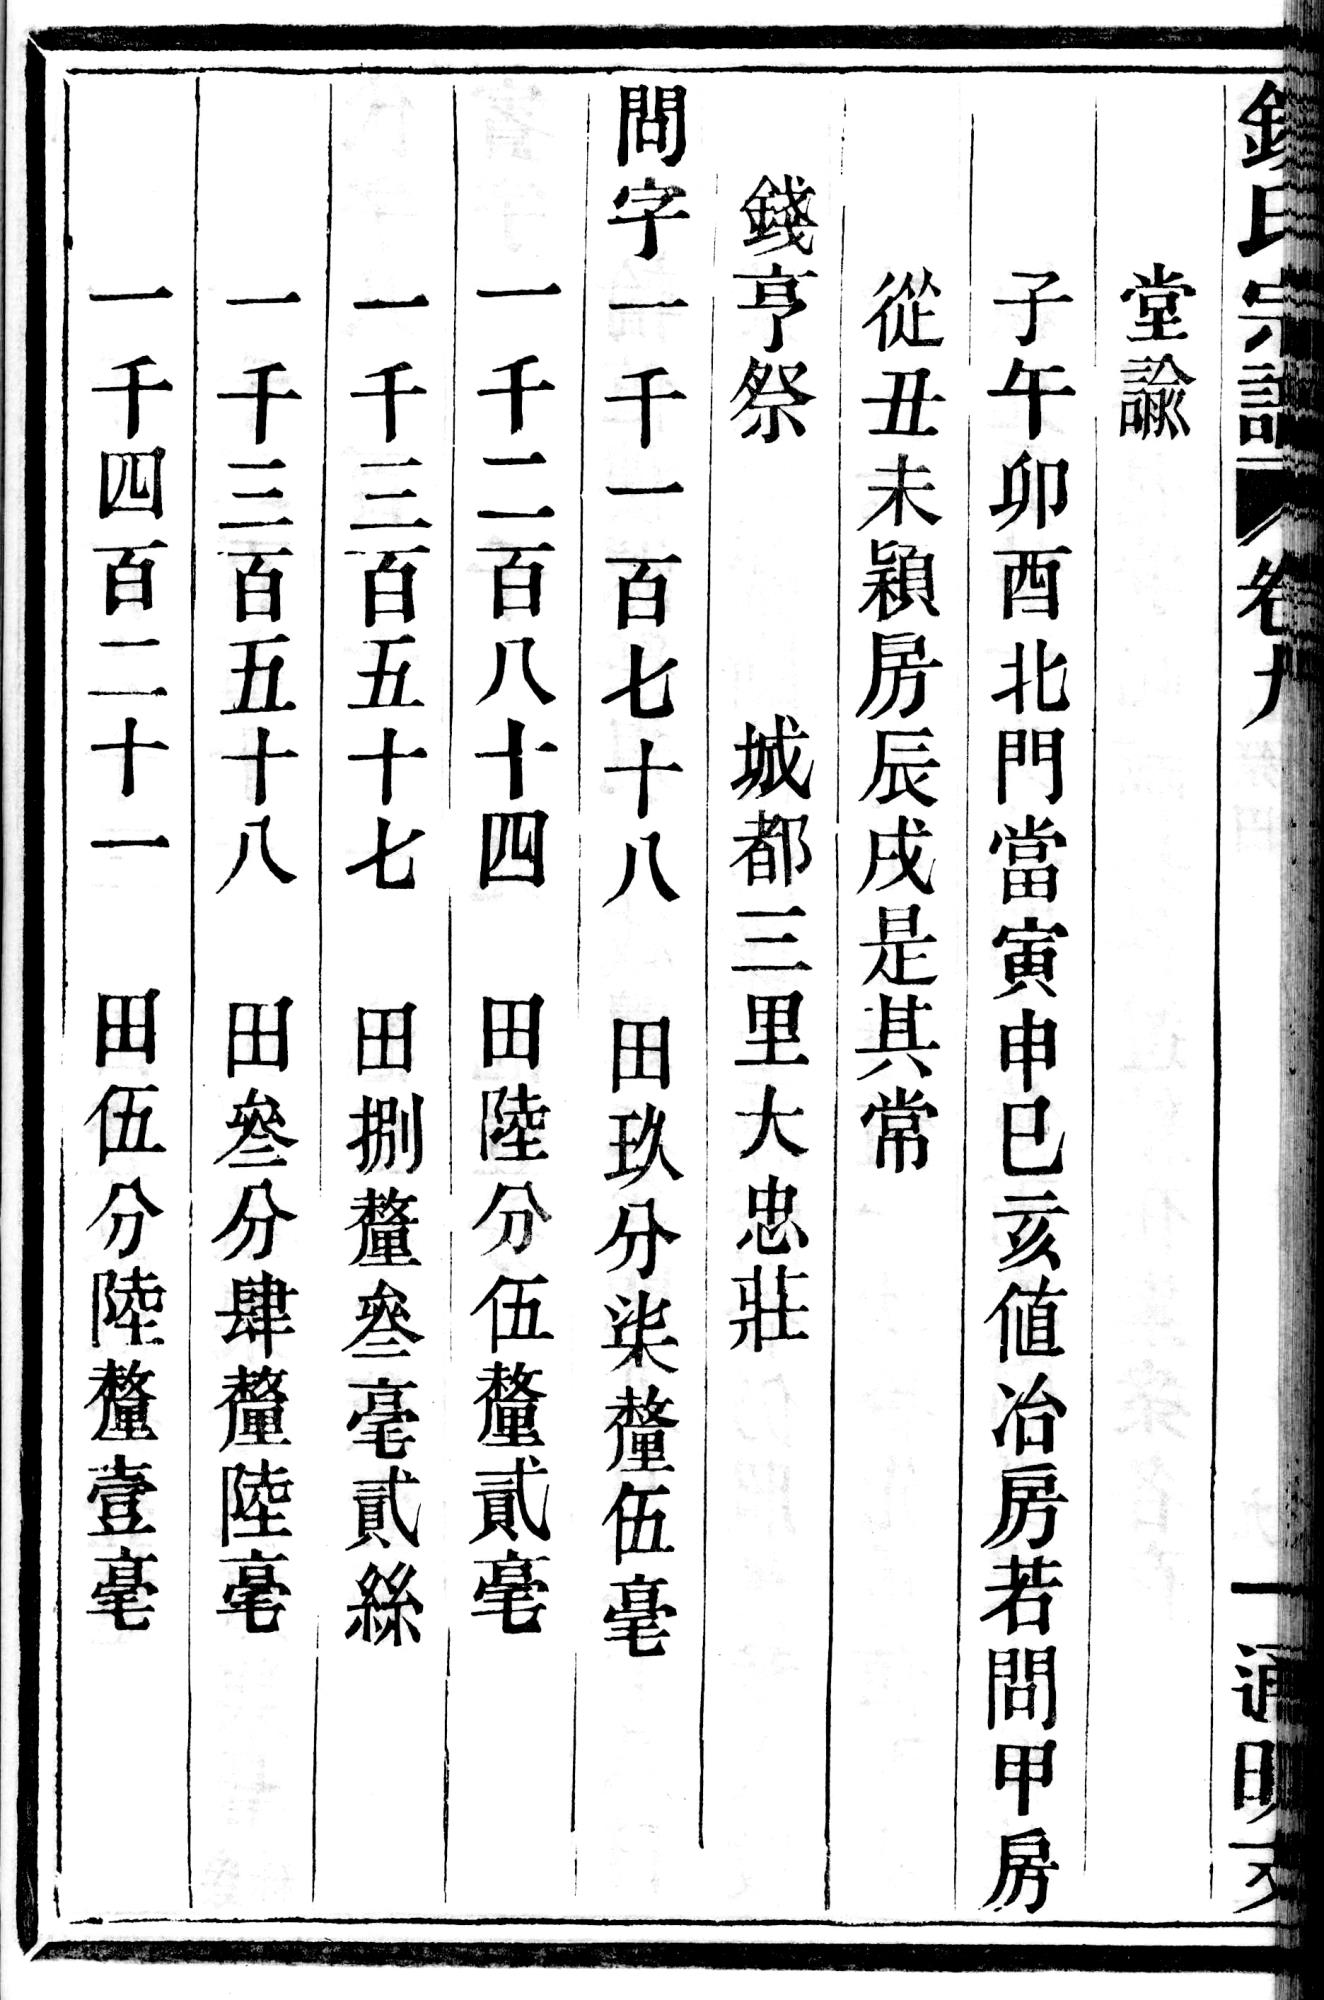 堂諭
子午卯酉北門當寅申巳亥値冶房若問甲房
從丑未穎房辰戌是其常
錢亨祭 城都三里大忠莊
問字一千一百七十八 田玖分柒釐伍毫
一千二百八十四 田陸分伍釐貳毫
一千三百五十七 田捌釐叄毫貳絲
一千三百五十八 田叄分肆釐陸毫
一千四百二十一 田伍分陸釐壹毫